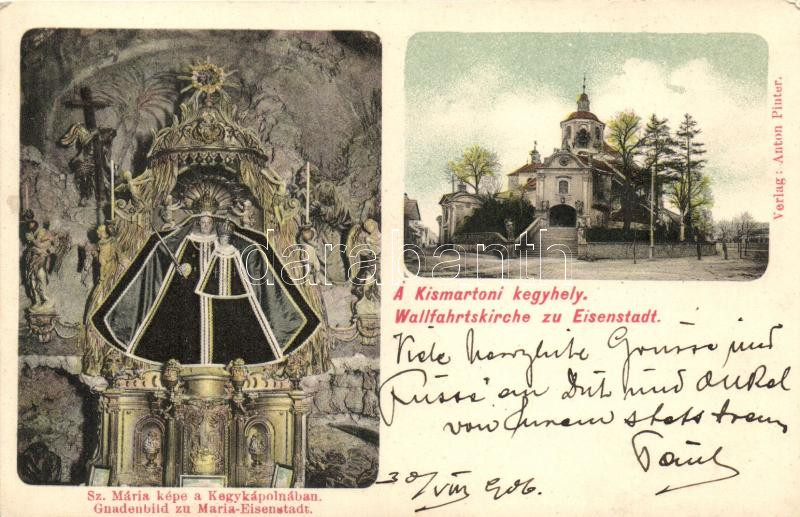 Sz. Mária képe a Kegykápolnában.
Gnadenbild zu Maria-Eisenstadt.
Á Kismartoni kegyhely.
Wallfahrtskirche zu Eisenstadt.
Verlag: Anton Pinter.
darabanth
Viele herzliche Grüsse und
Küsse an Dich und Onkel
von Eurem stets treuen
30/VIII 906.